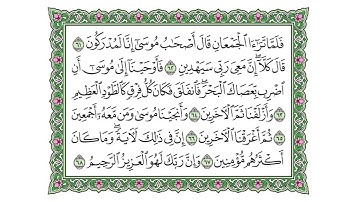 فَلَمَّا تَرَٰٓءَا ٱلْجَمْعَانِ قَالَ أَصْحَٰبُ مُوسَىٰٓ إِنَّا لَمُدْرَكُونَ ٦١
قَالَ كَلَّآ ۖ إِنَّ مَعِىَ رَبِّى سَيَهْدِينِ ٦٢ فَأَوْحَيْنَآ إِلَىٰ مُوسَىٰٓ أَنِ
ٱضْرِب بِّعَصَاكَ ٱلْبَحْرَ ۖ فَٱنفَلَقَ فَكَانَ كُلُّ فِرْقٍ كَٱلطَّوْدِ ٱلْعَظِيمِ
٦٣ وَأَزْلَفْنَا ثَمَّ ٱلْءَاخَرِينَ ٦٤ وَأَنجَيْنَا مُوسَىٰ وَمَن مَّعَهُۥٓ أَجْمَعِينَ
٦٥ ثُمَّ أَغْرَقْنَا ٱلْءَاخَرِينَ ٦٦ إِنَّ فِى ذَٰلِكَ لَءَايَةً ۖ وَمَا كَانَ
أَكْثَرُهُم مُّؤْمِنِينَ ٦٧ وَإِنَّ رَبَّكَ لَهُوَ ٱلْعَزِيزُ ٱلرَّحِيمُ ٦٨